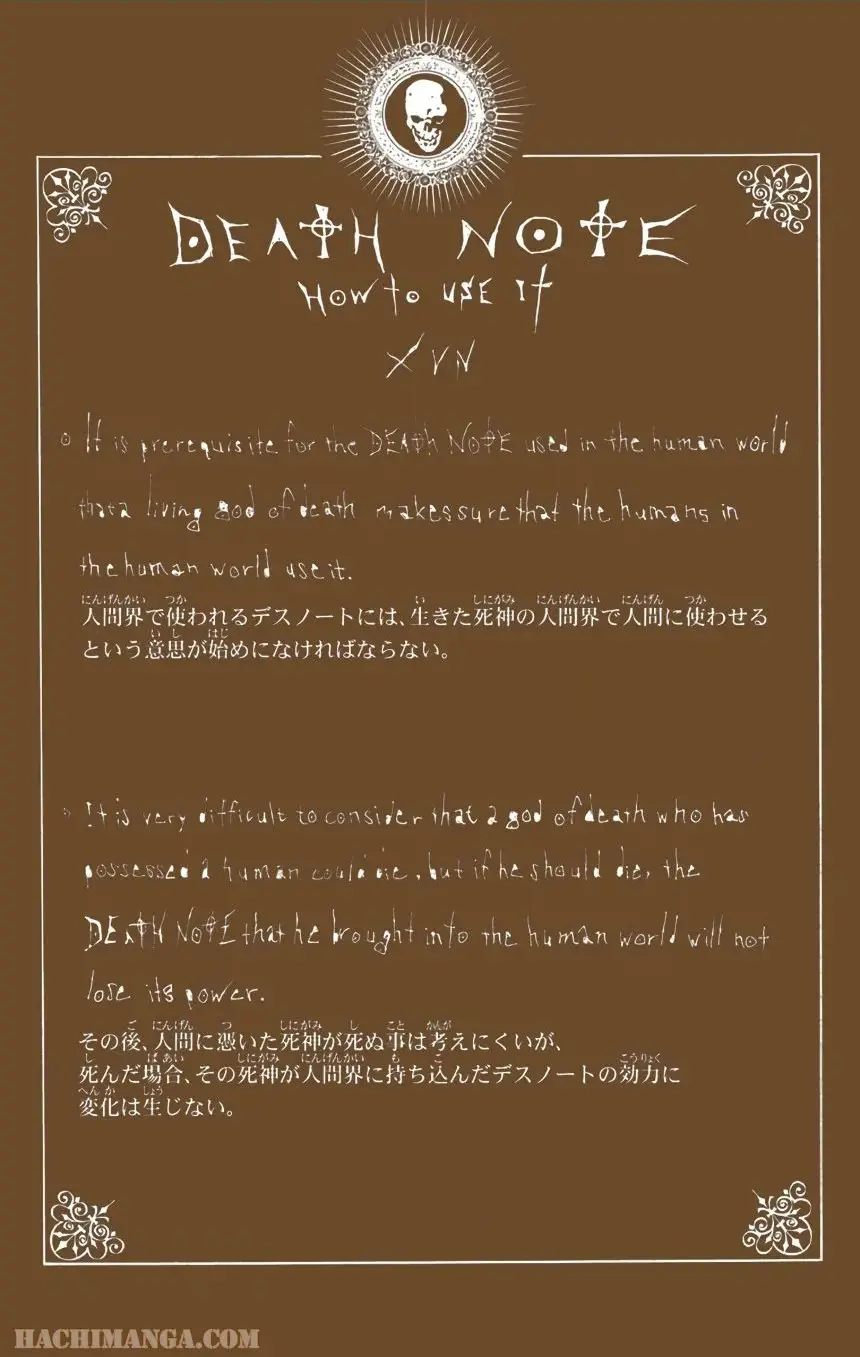 DEATH NOTE
HOW TO USE IT
XVII
It is prerequisite for the DEATH NOTE used in the human world
that a living god of death makes sure that the humans in
the human world use it.
人間界で使われるデスノートには、生きた死神の人間界で人間に使わせる
という意思が始めになければならない。
It is very difficult to consider that a god of death who has
possessed a human could die, but if he should die, the
DEATH NOTE that he brought into the human world will not
lose its power.
その後、人間に憑いた死神が死ぬ事は考えにくいが、
死んだ場合、その死神が人間界に持ち込んだデスノートの効力に
変化は生じない。
HACHIMANGA.COM